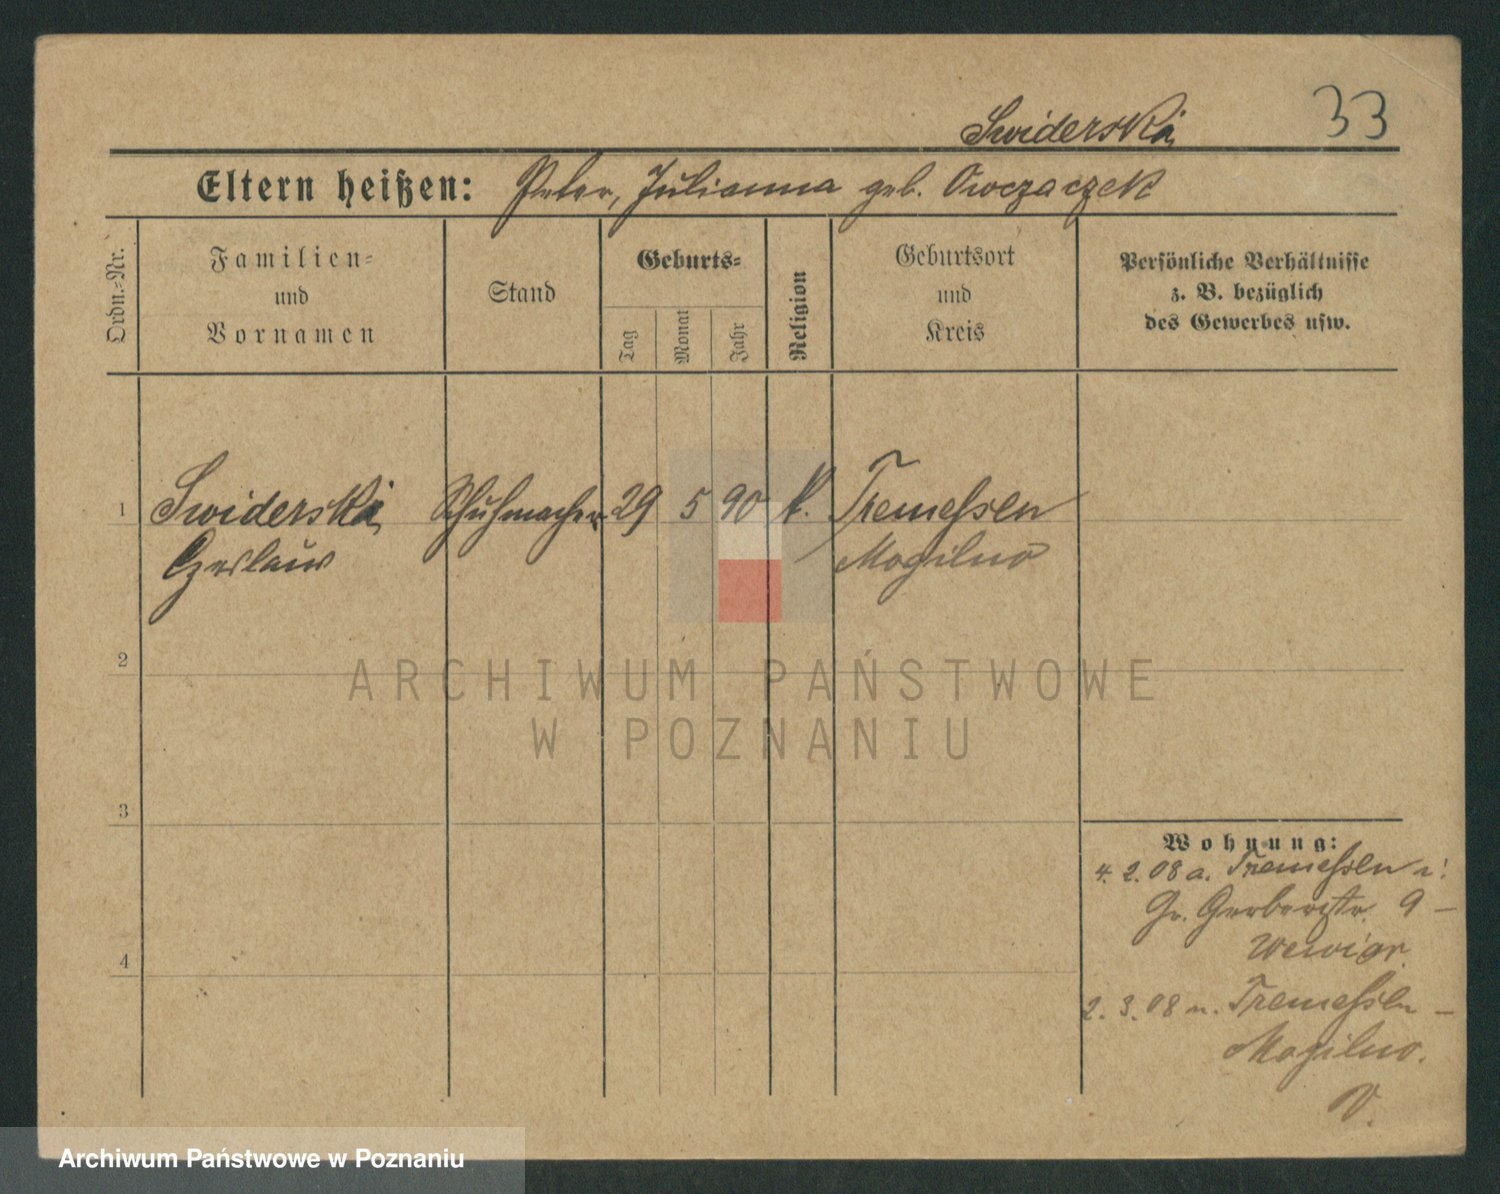 33
Swiderski
Eltern heißen: Peter, Julianna geb. Owczaczek
Ordn.-Nr.
Familien-
und
Vornamen
Stand
Geburts-
Tag
Monat
Jahr
Religion
Geburtsort
und
Kreis
Persönliche Verhältnisse
z. B. bezüglich
des Gewerbes usw.
1 Swiderski Schuhmacher 29 5 90 k. Tremessen
Czeslaus Mogilno
2
ARCHIWUM PAŃSTWOWE
W POZNANIU
3
Wohnung:
4. 2. 08 a. Tremessen
Gr. Gerberstr. 9 -
4
2. 3. 08 n. Tremessen -
Mogilno.
Archiwum Państwowe w Poznaniu